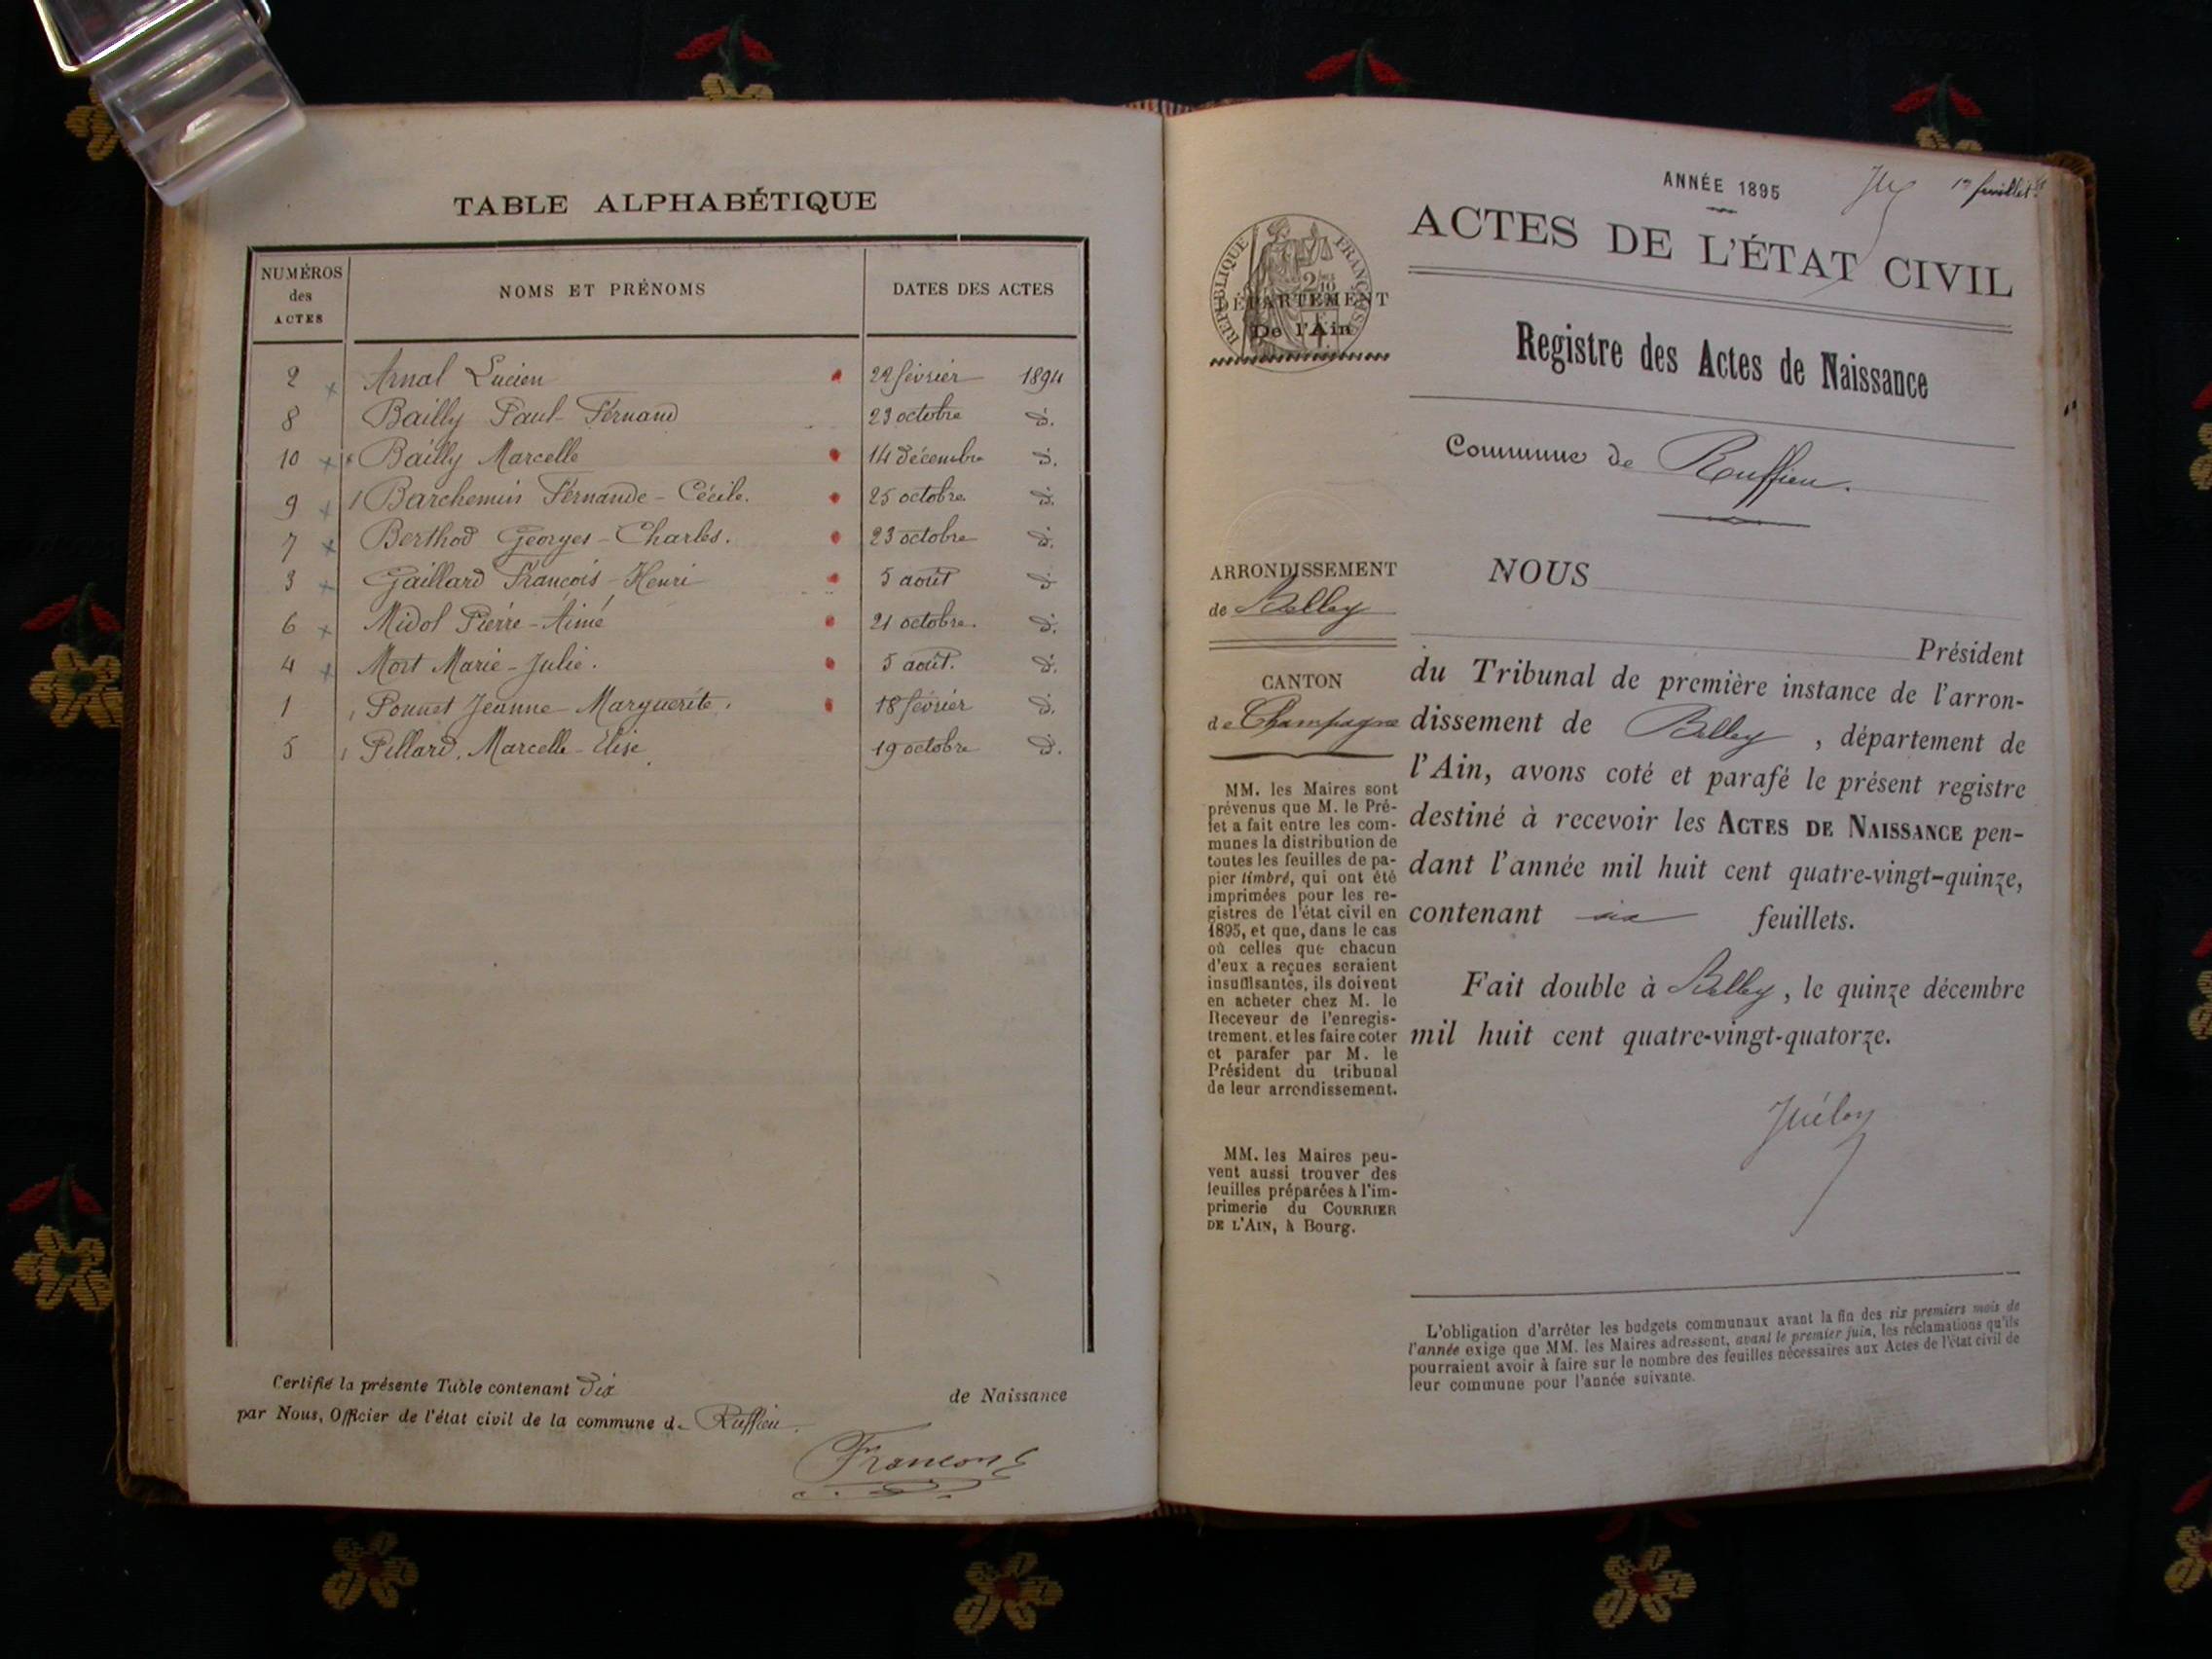 TABLE ALPHABÉTIQUE
NUMÉROS des ACTES NOMS ET PRÉNOMS DATES DES ACTES
2 Arnal Lucien 22 février 1894
8 Bailly Paul-Fernand 23 octobre d.
10 Bailly Marcelle 14 décembre d.
9 Barchemin Fernande-Cécile. 25 octobre d.
7 Berthod Georges-Charles. 23 octobre d.
3 Gaillard François-Henri 5 août d.
6 Midol Pierre-Aimé 21 octobre. d.
4 Mort Marie-Julie. 5 août. d.
1 Ponnet Jeanne Marguerite. 18 février d.
5 Pillard, Marcelle-Elise 19 octobre d.
Certifié la présente Table contenant dix de Naissance
par Nous, Officier de l'état civil de la commune d. Ruffieu.
ANNÉE 1895
1er feuillet
ACTES DE L'ÉTAT CIVIL
RÉPUBLIQUE FRANÇAISE
DÉPARTEMENT
De l'Ain
Registre des Actes de Naissance
Commune de Ruffieu.
ARRONDISSEMENT
de Belley
CANTON
de Champagne
MM. les Maires sont
prévenus que M. le Pré-
fet a fait entre les com-
munes la distribution de
toutes les feuilles de pa-
pier timbré, qui ont été
imprimées pour les re-
gistres de l'état civil en
1895, et que, dans le cas
où celles que chacun
d'eux a reçues seraient
insuffisantes, ils doivent
en acheter chez M. le
Receveur de l'enregis-
trement, et les faire coter
et parafer par M. le
Président du tribunal
de leur arrondissement.
MM. les Maires peu-
vent aussi trouver des
feuilles préparées à l'im-
primerie du COURRIER
DE L'AIN, à Bourg.
NOUS
Président
du Tribunal de première instance de l'arron-
dissement de Belley, département de
l'Ain, avons coté et parafé le présent registre
destiné à recevoir les ACTES DE NAISSANCE pen-
dant l'année mil huit cent quatre-vingt-quinze,
contenant six feuillets.
Fait double à Belley, le quinze décembre
mil huit cent quatre-vingt-quatorze.
L'obligation d'arrêter les budgets communaux avant la fin des six premiers mois de
l'année exige que MM. les Maires adressent, avant le premier juin, les réclamations qu'ils
pourraient avoir à faire sur le nombre des feuilles nécessaires aux Actes de l'état civil de
leur commune pour l'année suivante.